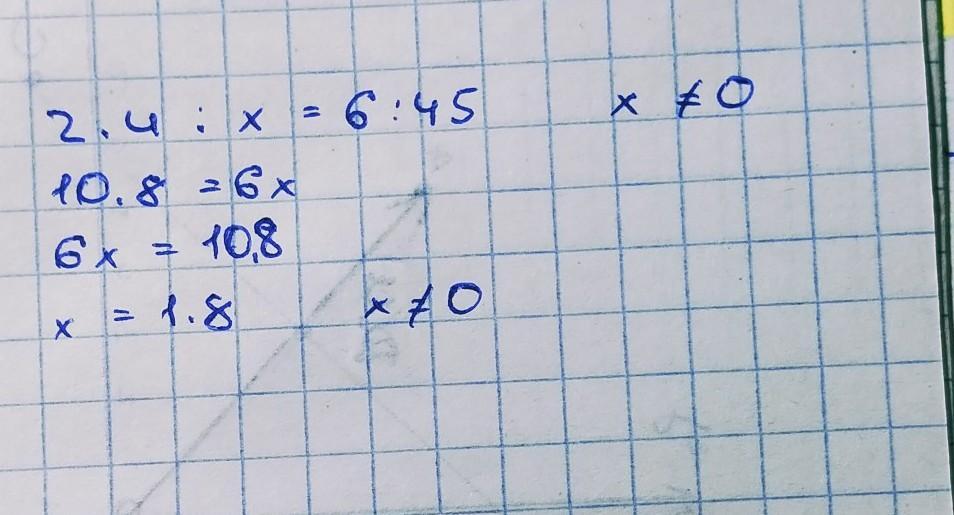 2.4 : x = 6:45 x ≠ 0
10.8 = 6x
6x = 10.8
x = 1.8 x ≠ 0